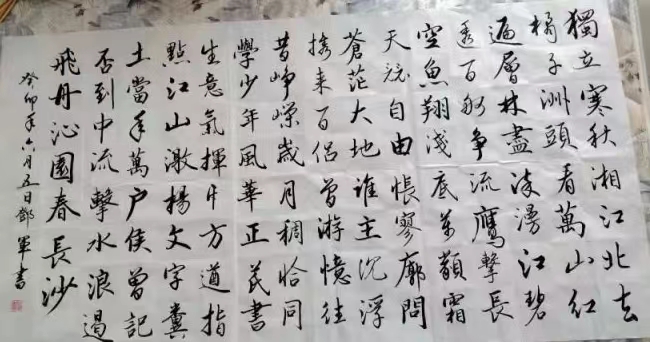 獨立寒秋湘江北去
橘子洲頭看萬山紅
遍層林盡染漫江碧
透百舸争流鷹擊長
空魚翔淺底萬類霜
天競自由悵寥廓問
蒼茫大地誰主沉浮
携来百侣曾游憶往
昔峥嶸歲月稠恰同
學少年風華正茂書
生意氣揮斥方遒指
點江山激揚文字糞
土當年萬户侯曾記
否到中流擊水浪遏
飛舟沁園春長沙
癸卯年六月五日鄧軍書